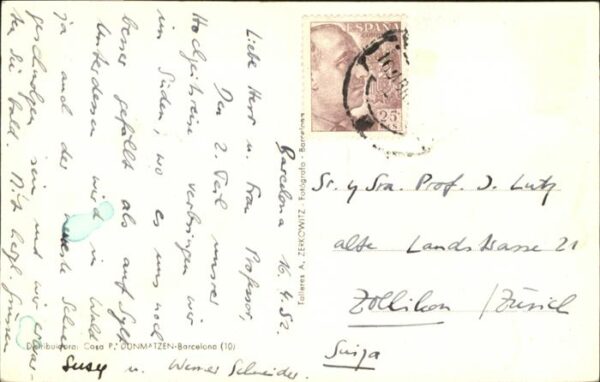 Barcelona 16.4.52.
Liebe Herr u. Frau Professor,
Den 2. Teil unserer
Hochzeitsreise verbringen wir
im Süden, wo es uns noch
besser gefällt als auf Sylt
Unterdessen wird in Wald
ja auch der neueste
geschwungen sein und wir erwar-
ten Sie bald. Mit herzl. Grüssen
Susy u. Werner Schneider.
ESPAÑA
25
Sr. y Sra. Prof. J. Lutz
alte Landstrasse 21
Zollikon / Zürich
Suiza
Talleres A. ZERKOWITZ - Fotógrafo - Barcelona
Distribuidora: Casa P. DÜNMATZEN-Barcelona (10)